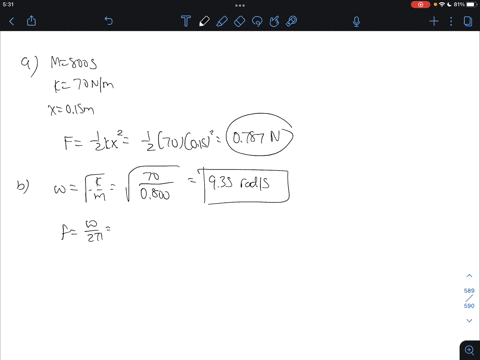 5:31
81%
a) M=800g
K=70N/m
x=0.15m
F = ½kx² = ½(70)(0.15)² = 0.787 N
b) ω = √k/m = √70/0.800 = 9.35 rad/s
f = ω/2π =
589
/
590